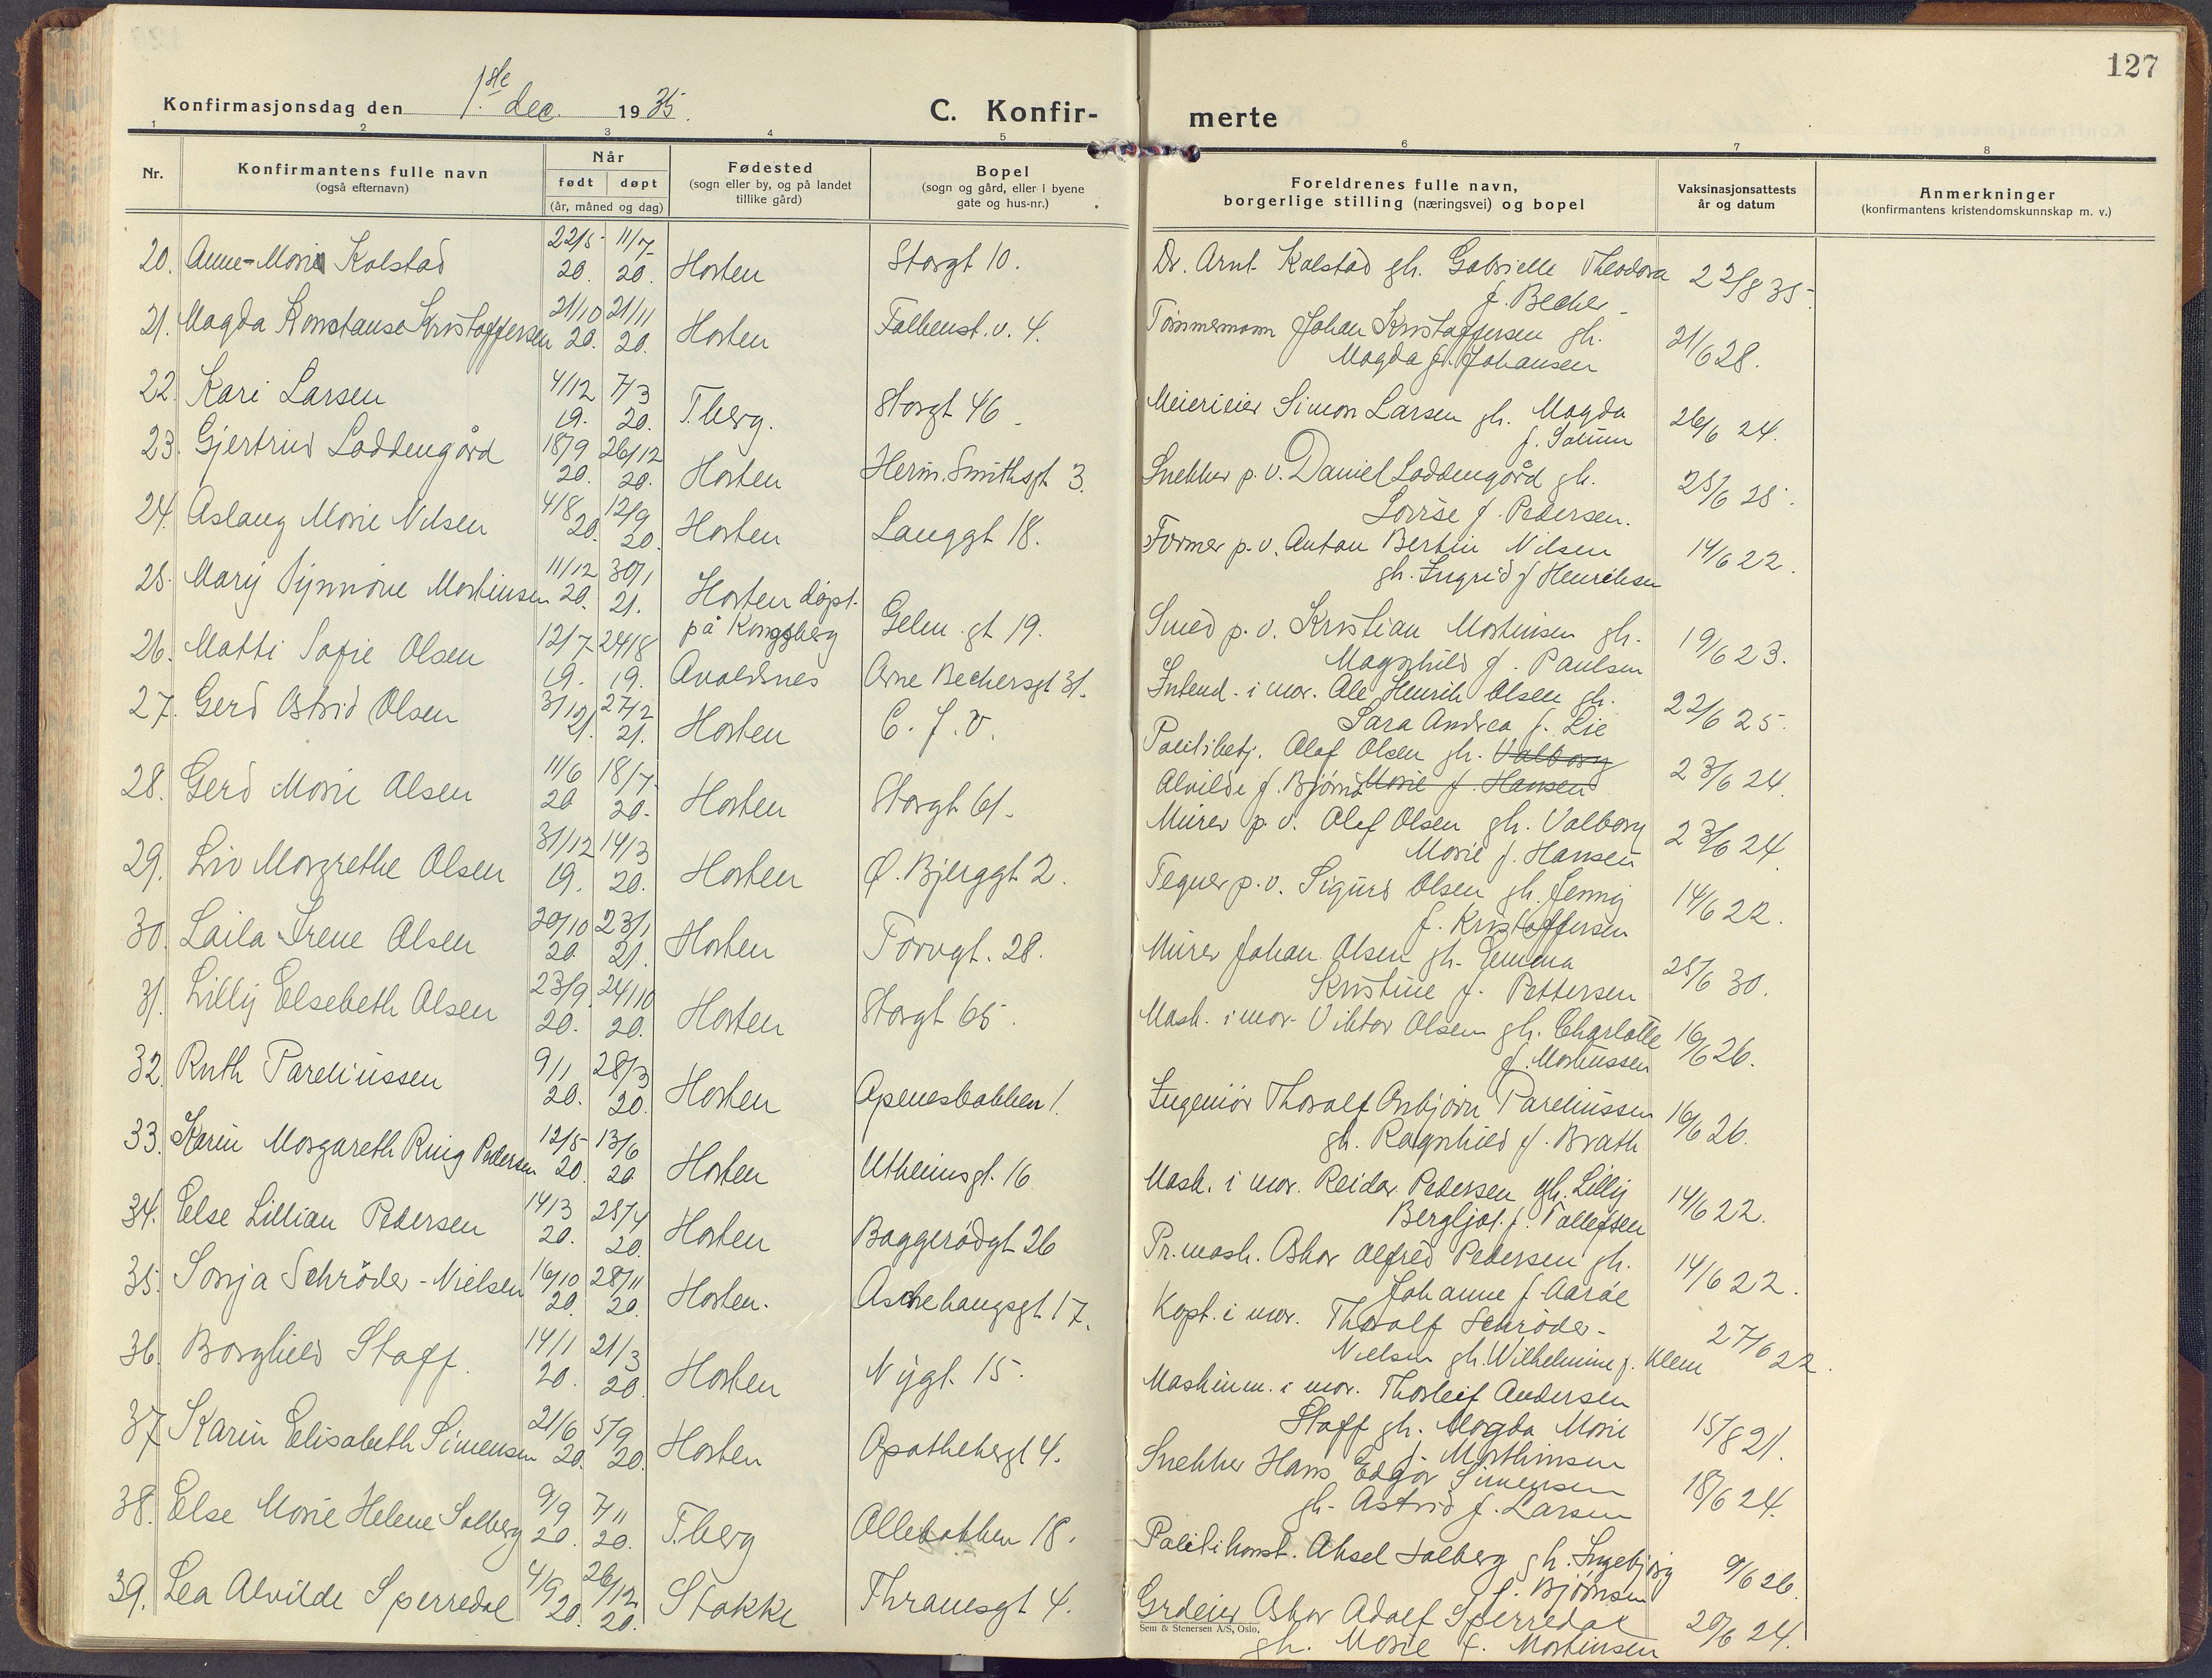 127
Konfirmasjonsdag den 1ste dec. 1935.
C. Konfir- merte
1 2 3 4 5 6 7 8
Nr.
Konfirmantens fulle navn
(også efternavn)
Når
født døpt
(år, måned og dag)
Fødested
(sogn eller by, og på landet
tillike gård)
Bopel
(sogn og gård, eller i byene
gate og hus-nr.)
Foreldrenes fulle navn,
borgerlige stilling (næringsvei) og bopel
Vaksinasjonsattests
år og datum
Anmerkninger
(konfirmantens kristendomskunnskap m. v.)
20. Anne-Marie Kolstad 22/5 20. 11/7 20. Horten Storgt 10. Dr. Arnt Kolstad gh. Gabrielle Theodora 22/8 35
f. Becher
21. Magda Konstanse Kristoffersen 21/10 20. 21/11 20. Horten Falkenst. v. 4. Tømmermann Johan Kristoffersen gh. 21/6 28.
Magda f. Johansen
22. Kari Larsen 4/12 19. 7/3 20. T.berg. Storgt 46. Meierieier Simon Larsen gh. Magda 26/6 24.
f. Solum
23. Gjertrud Loddengård 18/9 20. 26/12 20. Horten Herm. Smithsgt 3. Snekker p. v. Daniel Loddengård gh. 25/6 25.
Lovise f. Pedersen.
24. Aslaug Marie Nilsen 4/8 20. 12/9 20. Horten Langgt 18. Former p. v. Anton Bertin Nilsen 14/6 22.
gh. Ingrid f Henriksen
25. Mary Synnøve Martinsen 11/12 20. 30/1 21. Horten døpt Gelen. gt 19. Smed p. v. Kristian Martinsen gh. 19/6 23.
på Kongsberg Magnhild f. Paulsen
26. Matti Sofie Olsen 12/7 19. 24/8 19. Avaldsnes Arne Bechersgt 31. Intend. i mar. Ole Henrik Olsen gh. 22/6 25.
Sara Andrea f. Lie
27. Gerd Astrid Olsen 3/1 21. 27/2 21. Horten C. J. V. Politibetj. Olaf Olsen gh. Valborg 23/6 24.
Alvilde f. Bjørnø Marie f. Hansen
28. Gerd Marie Olsen 11/6 20 18/7 20. Horten Storgt 61. Murer p. v. Olaf Olsen gh. Valborg 23/6 24
Marie f. Hansen
29. Liv Margrethe Olsen 31/12 19. 14/3 20. Horten Q. Bjerggt 2. Tegner p. v. Sigurd Olsen gh. Jenny 14/6 22.
f. Kristoffersen
30. Laila Irene Olsen 20/10 20. 23/1 21. Horten Torvgt. 28. Murer Johan Olsen gh. Emma 25/6 30.
Kristine f. Pettersen
31. Lilly Elsebeth Olsen 23/9 20. 24/10 20. Horten Storgt 65. Mask. i mar. Viktor Olsen gh. Charlotte 16/6 26.
f. Martinssen
32. Ruth Pareliussen 9/1 20. 28/3 20. Horten Apenesbakken 1. Ingeniør Thoralf Asbjørn Pareliussen 16/6 26.
gh. Ragnhild f. Brath
33. Karin Margareth Ring Pedersen 12/5 20. 13/6 20. Horten Utheimsgt. 16 Mask. i mar. Reidar Pedersen gh. Lilly 14/6 22.
Bergljot f. Tollefsen
34. Else Lillian Pedersen 14/3 20. 25/4 20. Horten Baggerødgt 26 Pr. mask. Oskar Alfred Pedersen gh. 14/6 22.
Johanne f. Aarøe
35. Sonja Schrøder-Nielsen 16/10 20. 28/11 20. Horten. Aschehaugsgt 17. Kapt. i mar. Thoralf Schrøder- 27/6 22.
Nielsen gh. Wilhelmine f. Klem
36. Borghild Staff. 14/1 20. 21/3 20. Horten Nygt. 15. Maskinm. i mar. Thorleif Andersen
Staff gh. Magda Marie 15/8 21.
f. Marthinsen
37. Karin Elisabeth Simensen 21/6 20. 5/9 20. Horten Apothekergt 4. Snekker Hans Edgar Simensen 18/6 24.
gh. Astrid f. Larsen
38. Else Marie Helene Solberg 9/9 20. 7/11 20. T.berg Ollebakken 18. Politikonst. Aksel Solberg gh. Ingebjørg 9/6 26.
f. Bjørnsen
39. Lea Alvilde Sperredal 4/9 20. 26/12 20. Stokke Thranesgt 4. Grdeier Oskar Adolf Sperredal 20/6 24.
gh. Marie f. Martinsen
Sem & Stenersen A/S, Oslo.